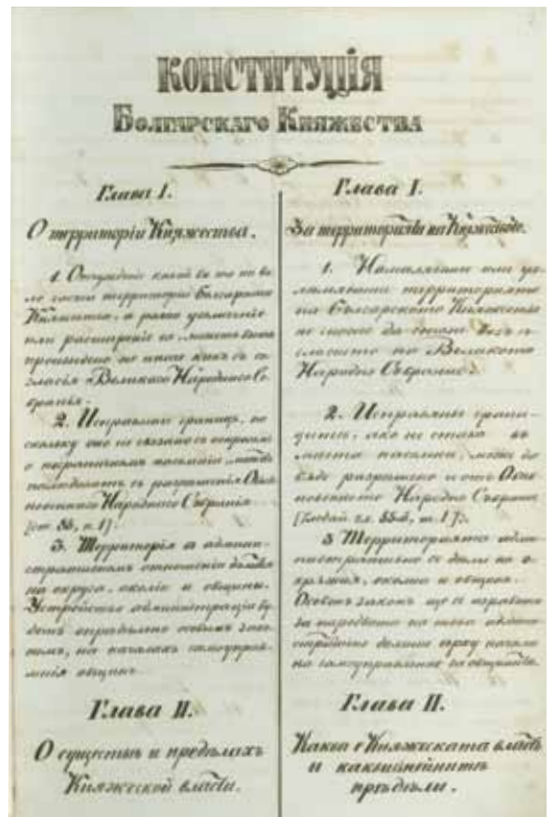 КОНСТИТУЦІЯ
БОЛГАРСКАГО КНЯЖЕСТВА
Глава I.
О территоріи Княжества.
1. Отчужденіе какой бы то ни бы-
ло части территоріи Болгарскаго
Княжества, а равно
или расширеніе ея
произведено не иначе какъ съ со-
гласія Великаго Народнаго Со-
бранія.
2. Исправленіе границъ, по-
скольку оно не связано съ вопросомъ
о пограничномъ населеніи,
съ разрѣшенія
Народнаго Собранія
[ст. 85, п. 1].
3. Территорія въ админи-
стративномъ отношеніи дѣлится
на округа, околіи и общины.
Устройство администраціи бу-
детъ опредѣлено особымъ зако-
номъ, на началахъ самоуправ-
ленія общинъ.
Глава II.
О существѣ и предѣлахъ
Княжеской власти.
Глава I.
За территорията на Княжеството.
1. Намаляванье или
территорията
на Българското Княжество
не може да бѫде безъ съ-
гласието на Великото
Народно Събрание.
2. Исправянье грани-
цитѣ, ако не става въ
мѣста населени, може да
бѫде разрѣшено и отъ
Народно Събрание
3. Територията адми-
нистративно се дѣли на о-
крѫжия, околии и общини.
Особенъ законъ ще се изработи
за нареждането на това админи-
дѣление върху начало
на самоуправление на общинитѣ.
Глава II.
Каква е Княжеската власть
и
прѣдѣли.